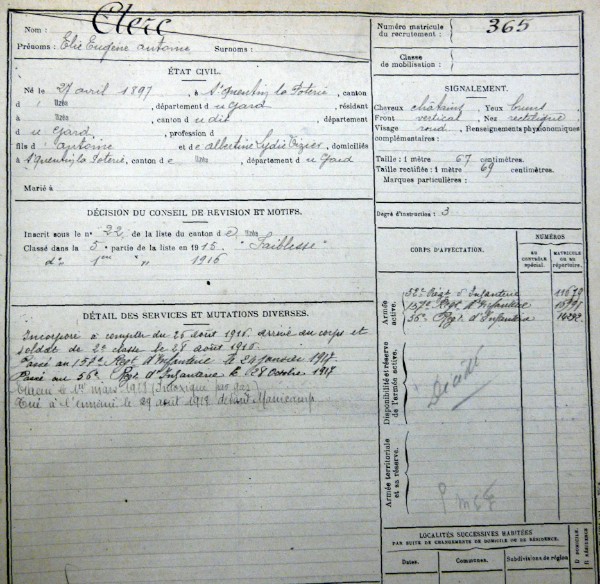 Nom : Clerc
Prénoms : Elie Eugène Antoine Surnoms :
Numéro matricule du recrutement : 365
Classe de mobilisation :
ÉTAT CIVIL.
Né le 27 avril 1897, à St Quentin la Poterie, canton
d' Uzès, département du Gard, résidant
à Uzès, département
du Gard, profession d
fils d' Antoine et de Albertine Lydie, domiciliés
à St Quentin la Poterie, canton de Uzès, département du Gard
Marié à
SIGNALEMENT.
Cheveux châtains Yeux bruns
Front vertical Nez rectiligne
Visage rond Renseignements physionomiques
complémentaires :
Taille : 1 mètre 67 centimètres.
Taille rectifiée : 1 mètre 69 centimètres.
Marques particulières :
Degré d'instruction : 3
DÉCISION DU CONSEIL DE RÉVISION ET MOTIFS.
Inscrit sous le no 22 de la liste du canton d' Uzès
Classé dans la 5e partie de la liste en 1915. "Faiblesse"
do 1ère " 1916
CORPS D'AFFECTATION.
NUMÉROS
AU CONTRÔLE spécial.
MATRICULE OU AU répertoire.
Armée active.
52e Régt d'Infanterie
157e Régt d'Infanterie
56e Régt d'Infanterie
Disponibilité et réserve de l'armée active.
Décédé
Armée territoriale et sa réserve.
DÉTAIL DES SERVICES ET MUTATIONS DIVERSES.
Incorporé à compter du 25 août 1916. arrivé au corps et
soldat de 2e classe le 28 août 1916.
Passé au 157e Régt d'Infanterie le 24 janvier 1917
Passé au 56e Régt d'Infanterie le 28 octobre 1917
le 1er mars 1918 (Intoxiqué par gaz)
Tué à l'ennemi le 29 août 1918 devant Manicamp.
LOCALITÉS SUCCESSIVES HABITÉES
PAR SUITE DE CHANGEMENTS DE DOMICILE OU DE RÉSIDENCE.
Dates. Communes. Subdivisions de région
D DOMICILE.
R RÉSIDENCE